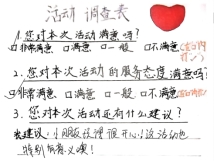 活动 调查表
1. 您对本次活动满意吗?
☑非常满意 □满意 □一般 □不满意
2. 您对本次活动的服务态度满意吗?
☑非常满意 □满意 □一般 □不满意
3. 您对本次活动还有什么建议?
建议:小朋友很开心!这活动也
特别有意义哦!